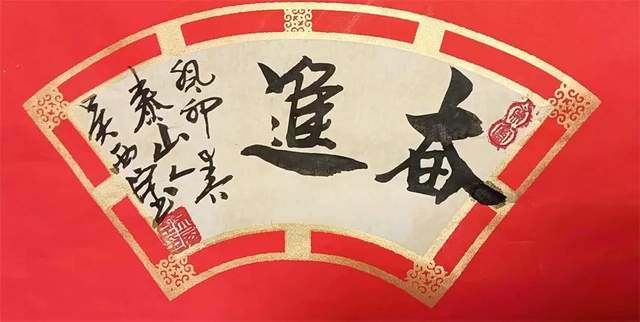 奋進
癸卯春
泰山人
吴西宝